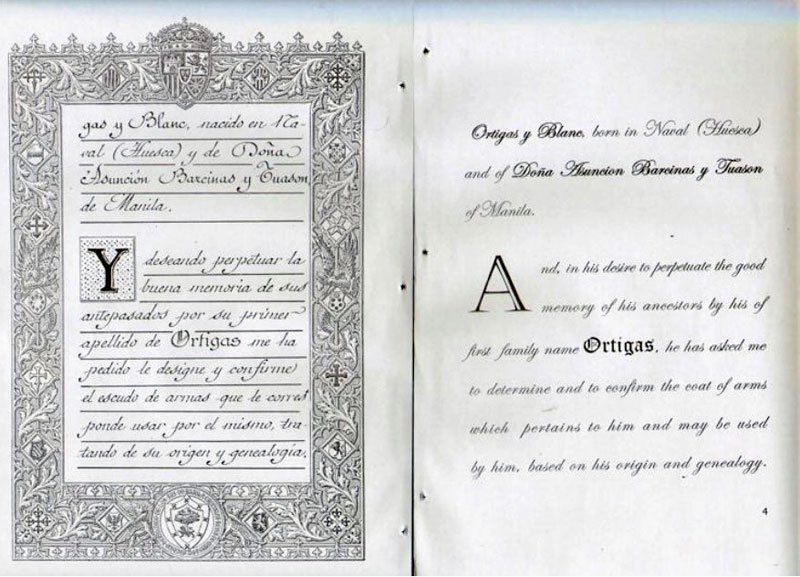 gas y Blanc, nacido en Na-
val (Huesca) y de Doña
Asunción Barcinas y Tuason,
de Manila.
Y deseando perpetuar la
buena memoria de sus
antepasados por su primer
apellido de Ortigas me ha
pedido le designe y confirme
el escudo de armas que le corres
ponde usar por el mismo, tra-
tando de su origen y genealogía.
Ortigas y Blanc, born in Naval (Huesca)
and of Doña Asuncion Barcinas y Tuason
of Manila.
And, in his desire to perpetuate the good
memory of his ancestors by his of
first family name Ortigas, he has asked me
to determine and to confirm the coat of arms
which pertains to him and may be used
by him, based on his origin and genealogy.
4